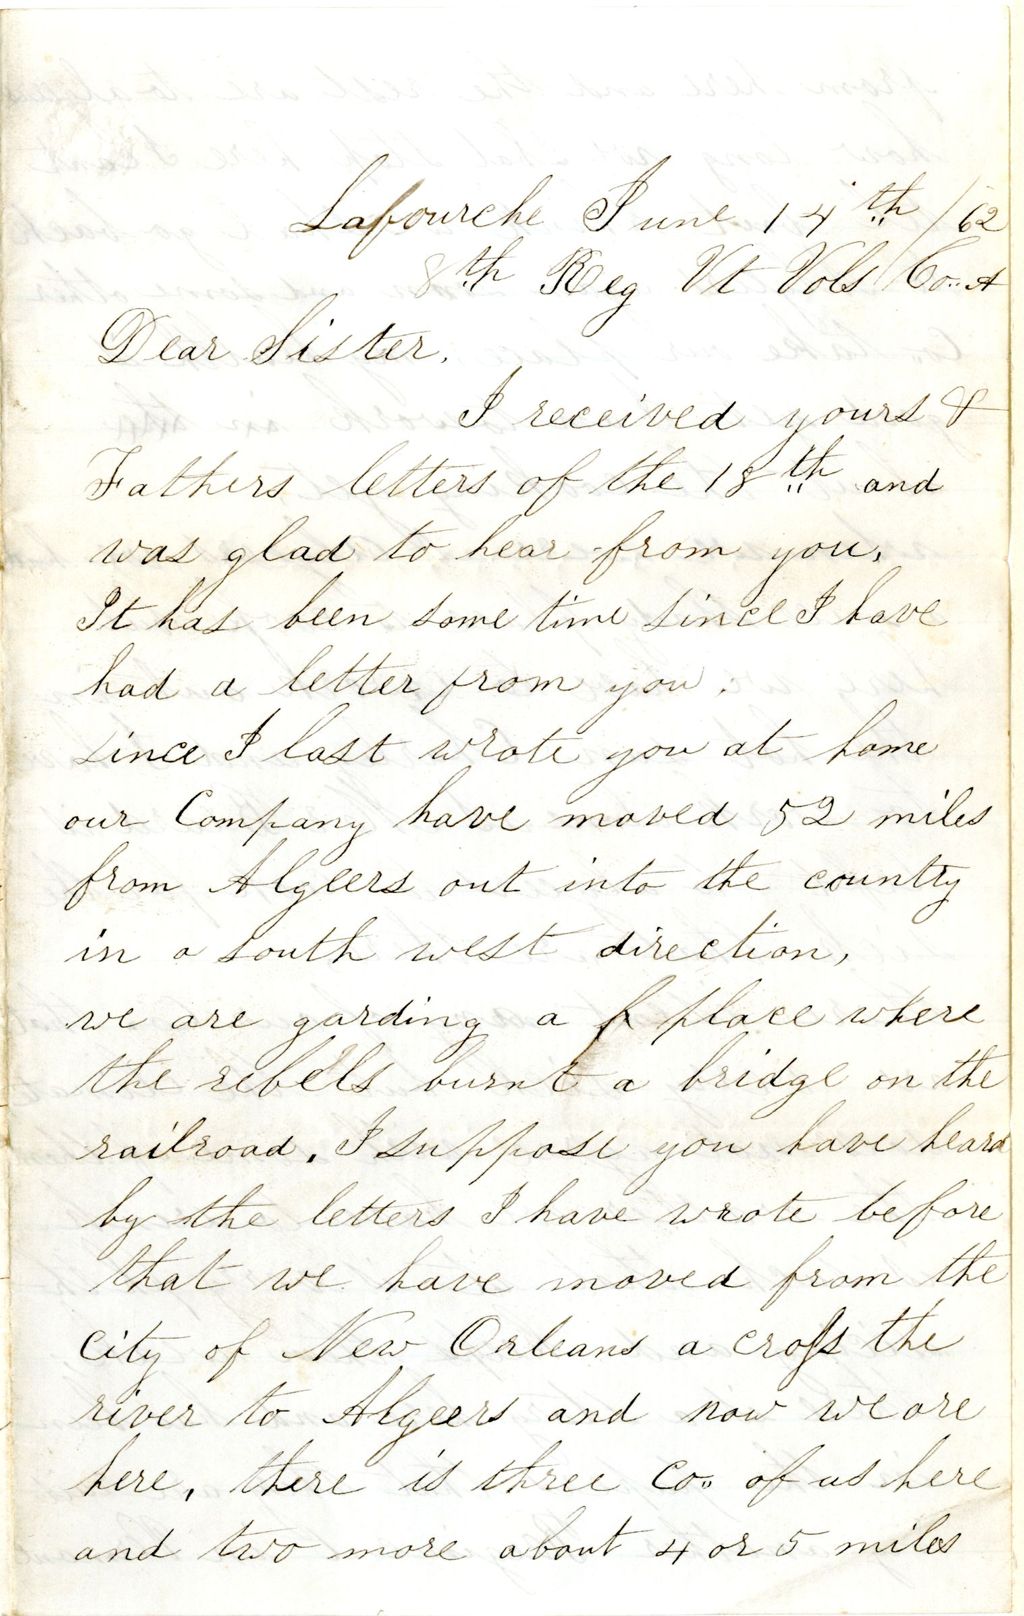 Lafourche June 14th /62
8th Reg Vt Vols Co. A
Dear Sister.
I received yours &
Fathers letters of the 18th and
was glad to hear from you,
It has been some time since I have
had a letter from you.
since I last wrote you at home
our Company have moved 52 miles
from Algeers out into the country
in a south west direction,
we are garding a place where
the rebels burnt a bridge on the
railroad. I suppose you have heard
by the letters I have wrote before
that we have moved from the
City of New Orleans a cross the
river to Algeers and now we are
here, there is three Co. of us here
and two more about 4 or 5 miles